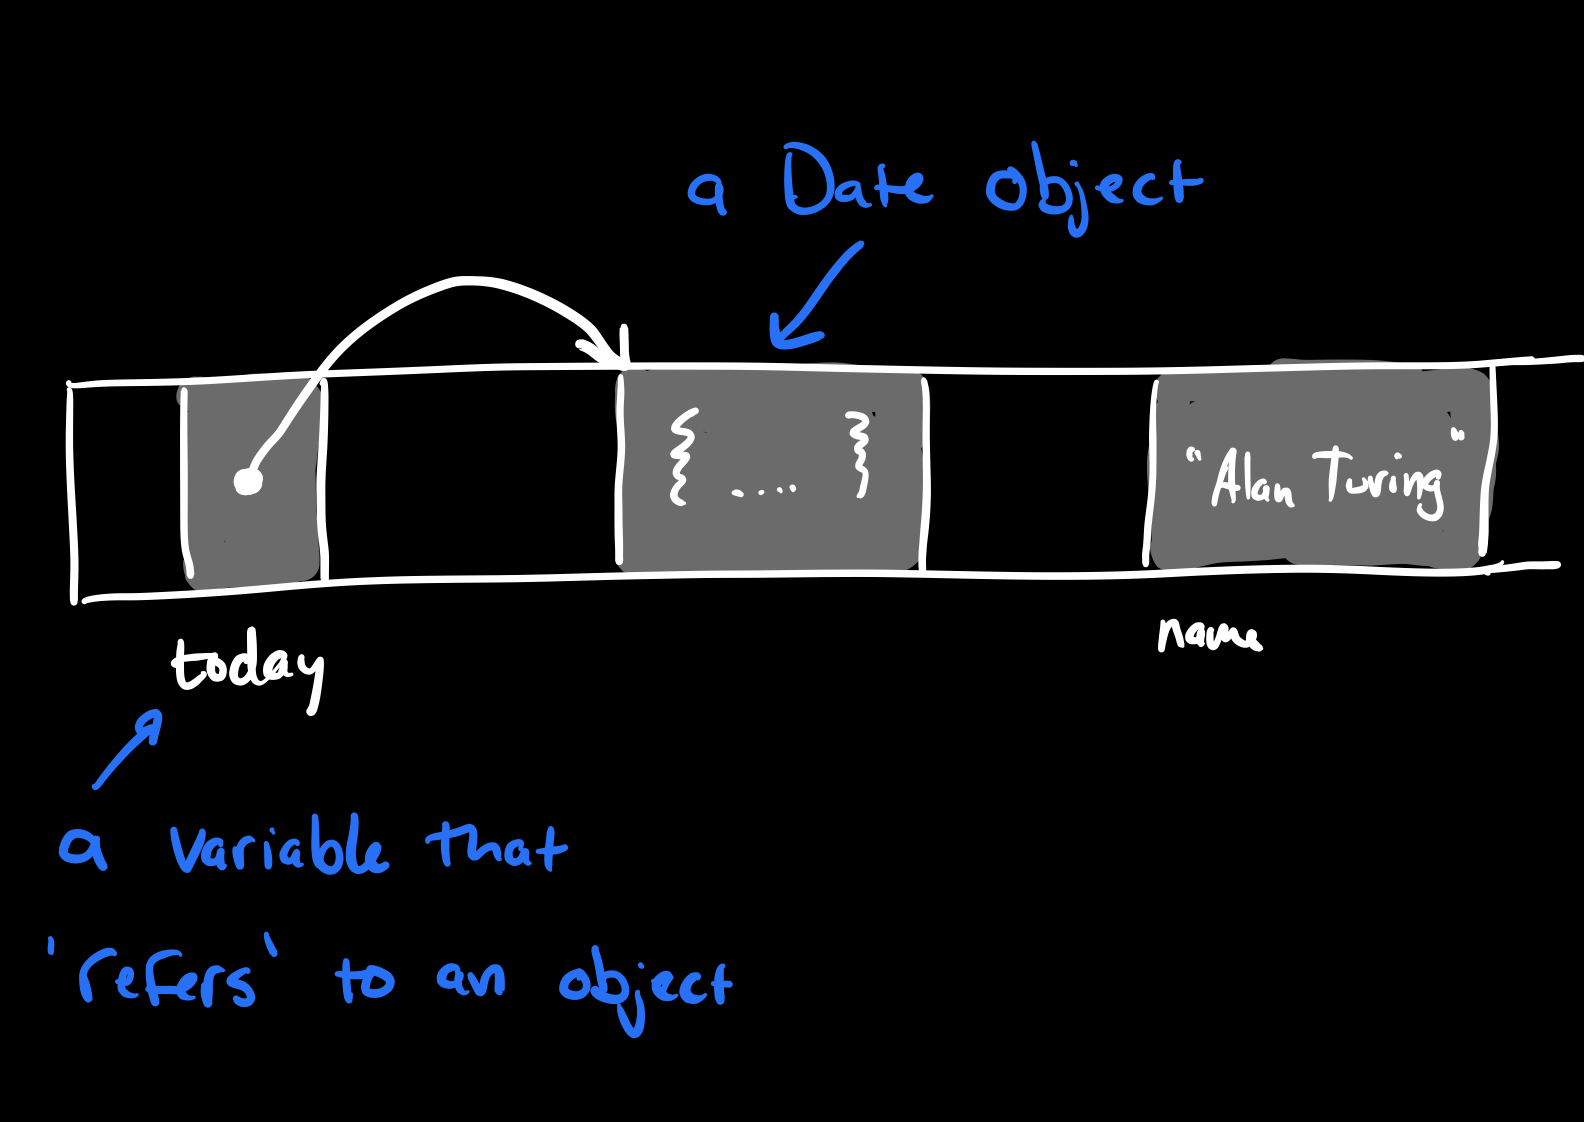 a Date object
{ .... }
“Alan Turing”
today
name
a variable that
'refers' to an object